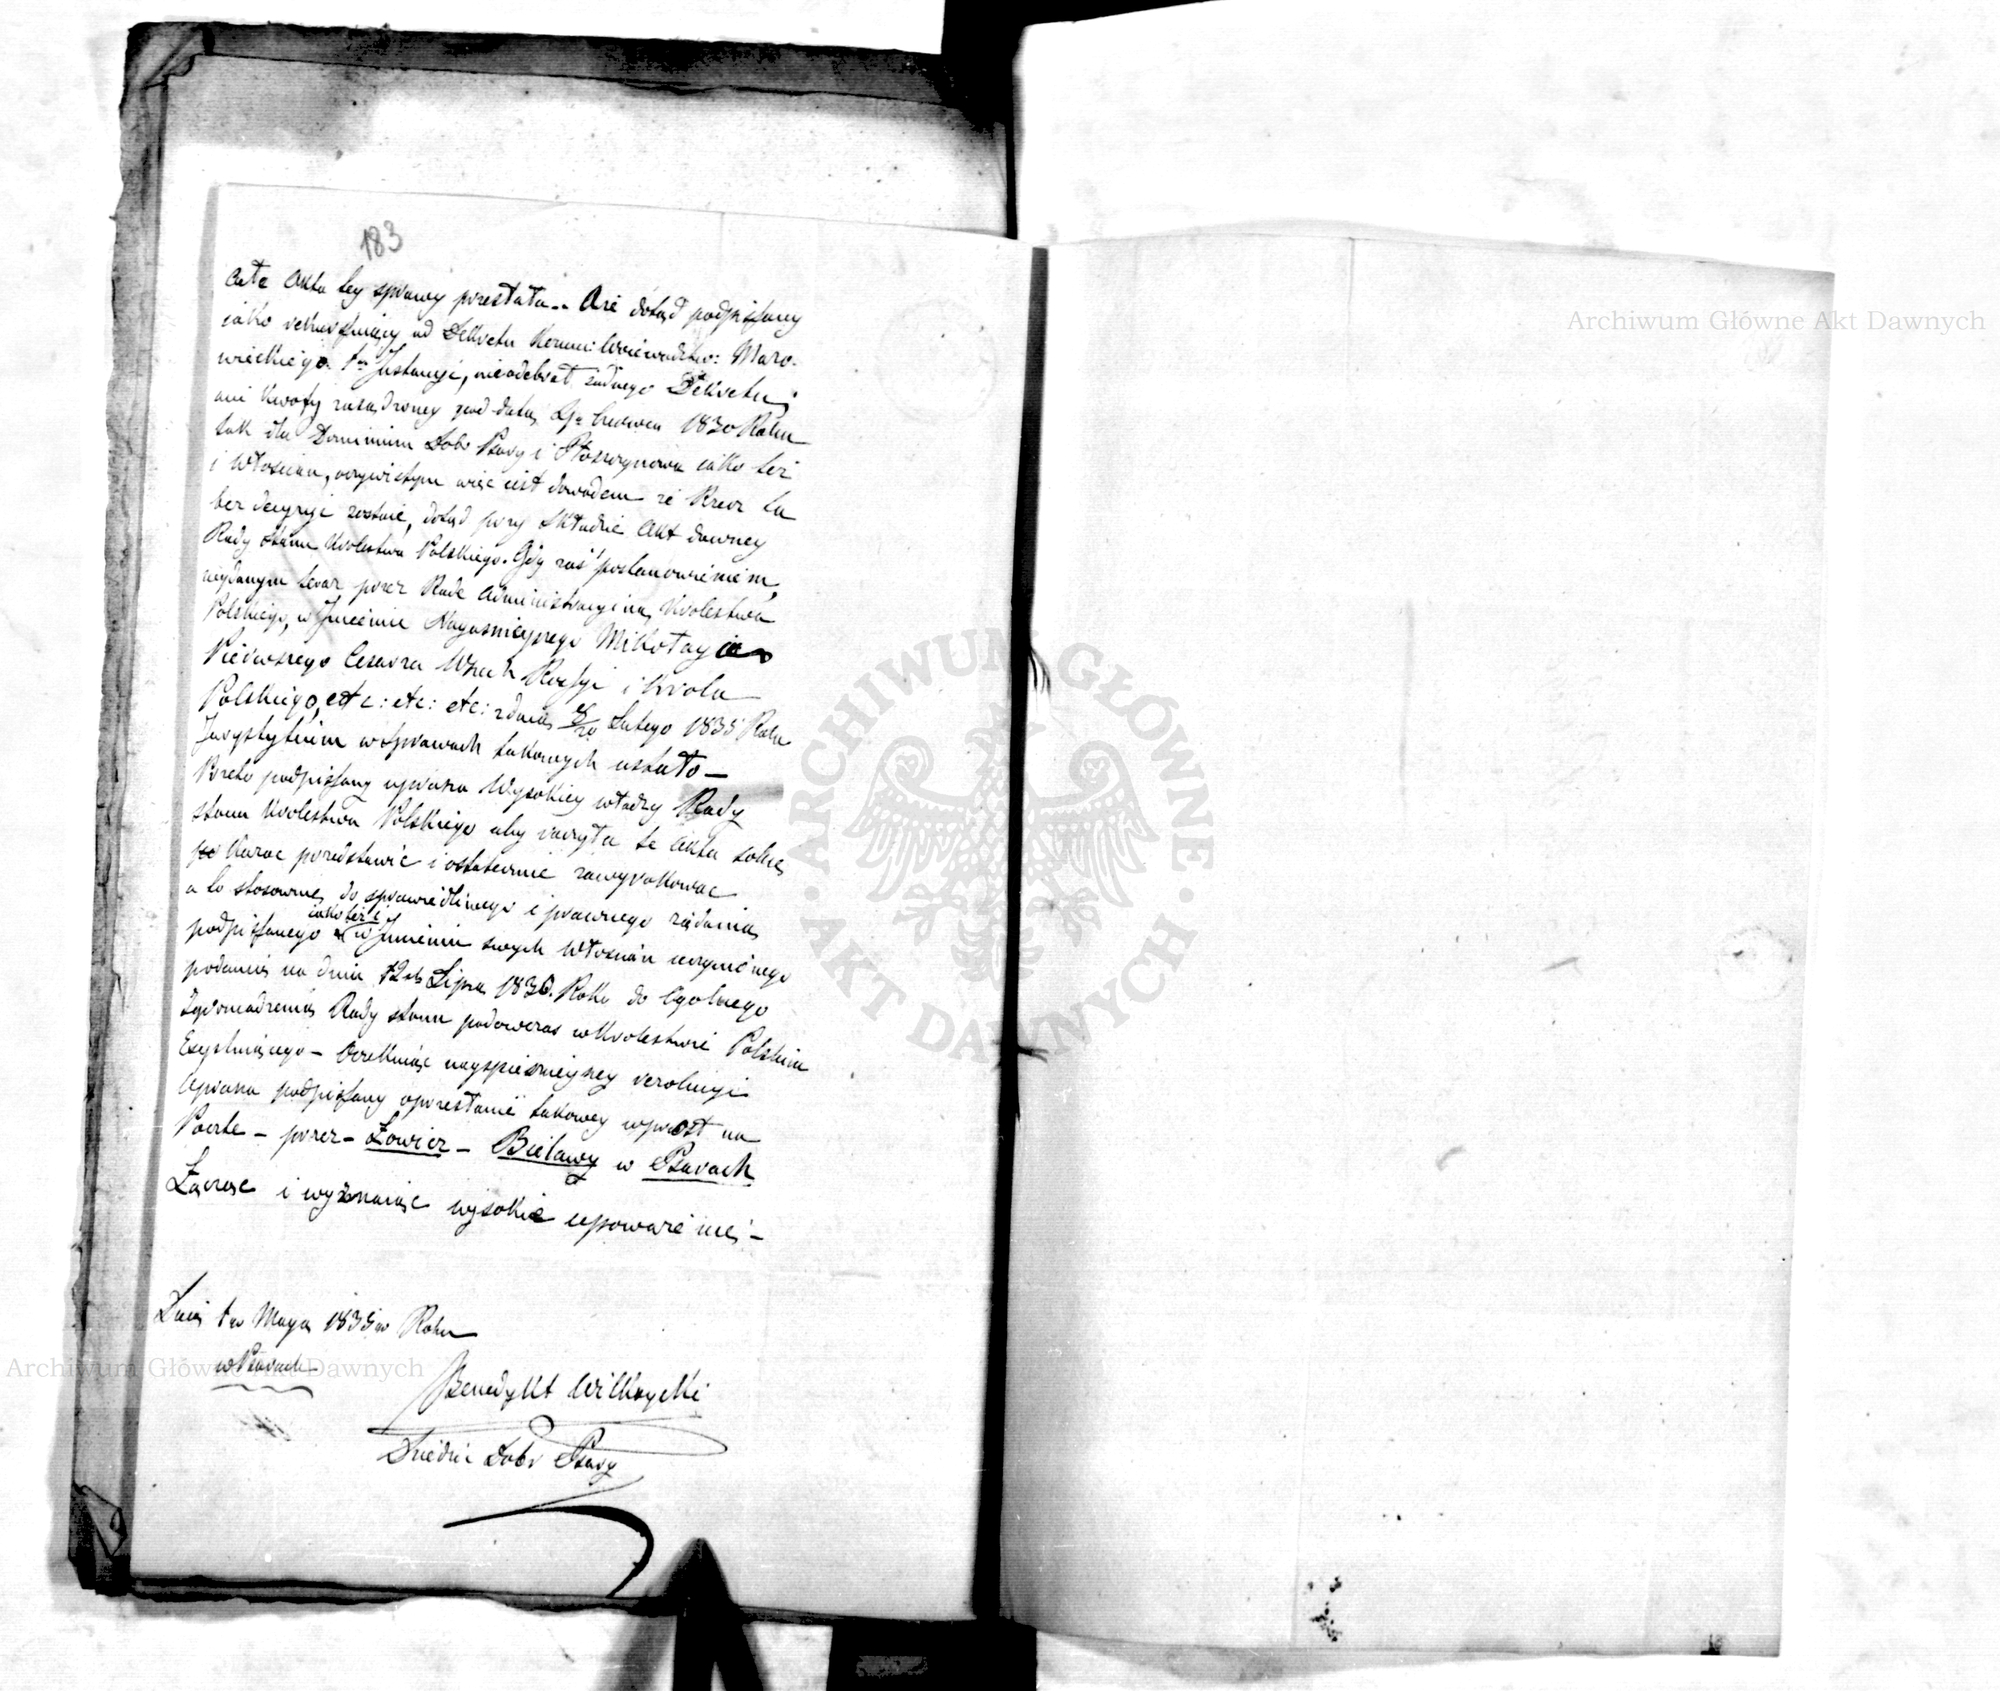 183
całe Akta tey sprawy przesłała.. Że dotąd podpissany
iáko rekurssuiący od Dekretu Kommi: Woiewodztw: Mazo-
wieckiego 1ey Instancyi, nieodebrał żadnego Dekretu,
ani Kwoty zasądzoney pod datą Czerwca 1830 Roku
tak dla Dominium Dobr Psary i iáko też
i Włoscian, oczywistym więc iest dowodem że Rzecz ta
bez decyzyi zostáie, dotąd przy składzie Akt dawney
Rady stanu Krolestwa Polskiego. Gdy zaś postanowieniem,
wydanym teraz przez Radę Administracyiną Krolestwa
Polskiego, w Jmieniu Nayiasnieyszego Mikołayia
Pierwszego Cesarza Wszech Rossyi i Krola
Polskiego, etc: etc: etc: z dnia 8/20 Lutego 1835 Roku
w sprawach takowych ustało –
Przeto podpissany uprasza Wysokiey władzy Rady
stanu Krolestwa Polskiego aby raczyła te Akta sobie
Kazac przedstawic i ostatecznie zawyrokowac
a to stosownie do sprawiedliwego i prawnego żądania
iáko też i
podpissanego w Jmieniu swych Włoscian uczynionego
podania na dniu 12ch Lipca 1830. Roku do Ogolnego
Zgromadzenia Rady stanu podowczas w Krolestwie Polskim
Exystuiącego – Oczekuiąc nayspieszneyszey rezolucyi
Uprasza podpissany o przesłanie takowey wprost na
Poczte – przez – Łowicz – Bielawy w Psarach
Łącząc i wyznaiąc wysokie upoważnie –
Dnia 1go Maya 1835go Roku
w Psarach
Benedykt Wilkszycki
Dziedzic Dobr Psary
Archiwum Główne Akt Dawnych
Archiwum Główne Akt Dawnych
ARCHIWUM GŁÓWNE · AKT DAWNYCH ·